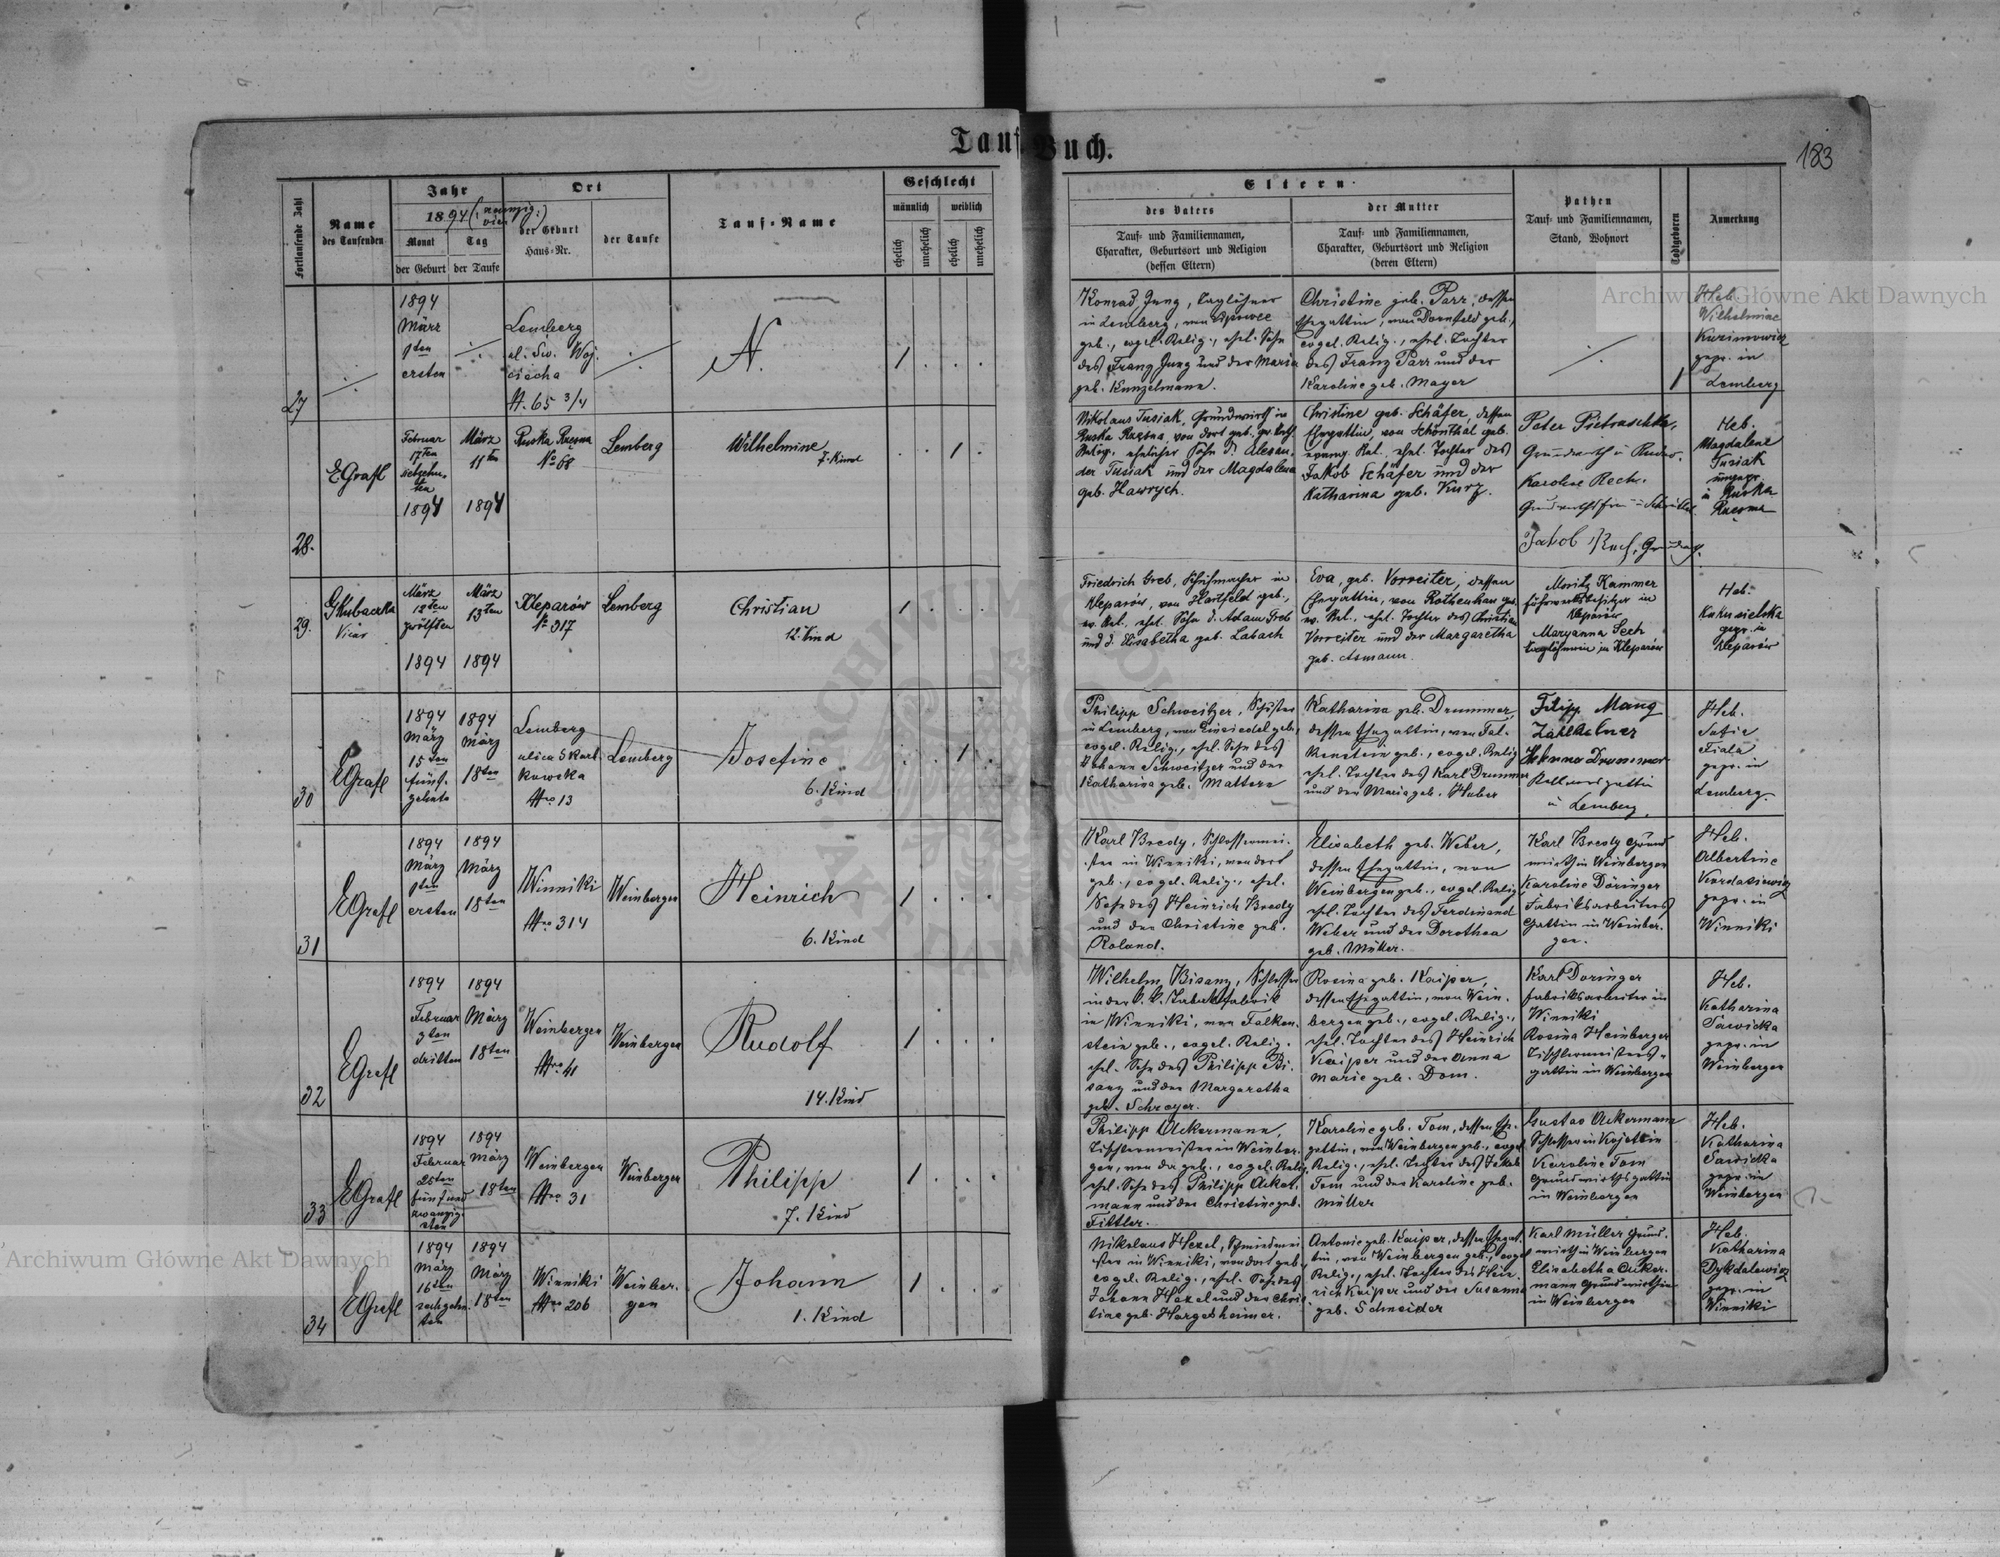 Tauf-Buch.
183
Fortlaufende Zahl
Name
des Taufenden
Jahr
1894 (neunzig: vier)
Monat
Tag
der Geburt
der Taufe
Ort
der Geburt
Haus-Nr.
der Taufe
Tauf-Name
Geschlecht
männlich
weiblich
ehelich
unehelich
ehelich
unehelich
Eltern
des Vaters
Tauf- und Familiennamen,
Charakter, Geburtsort und Religion
(dessen Eltern)
der Mutter
Tauf- und Familiennamen,
Charakter, Geburtsort und Religion
(deren Eltern)
Pathen
Tauf- und Familiennamen,
Stand, Wohnort
Todtgeboren
Anmerkung
27
1894
März
1ten
ersten
Lemberg
ul. Św. Woj-
ciecha
N. 65 3/4
N.
1
Konrad Jung, Taglöhner
in Lemberg, von
geb., evgel. Relig., ehel. Sohn
des Franz Jung und der Maria
geb. Kunzelmann.
Christine geb. Parr, dessen
Ehegattin, von Dornfeld geb.,
evgel. Relig., ehel. Tochter
des Franz Parr und der
Karoline geb. Mayer
1
Heb.
Wilhelmine
Kuzimowicz
gepr. in
Lemberg
28.
EGrafl
Februar
17ten
siebzehn-
ten
1894
März
11ten
1894
Ruska Raesna
No 68
Lemberg
Wilhelmine
7. Kind
1
Nikolaus Tusiak, Grundwirth in
Ruska Raesna, von dort geb. gr. kath.
Relig. ehelicher Sohn d. Alexan-
der Tusiak und der Magdalena
geb. Hawrych.
Christine geb. Schäfer, dessen
Ehegattin, von Schönthal geb.
evang. Rel., ehel. Tochter des
Jakob Schäfer und der
Katharina geb. Kurz.
Peter Pietraschka,
Karoline Rech.
Jakob Rech,
Heb.
Magdalene
Tusiak
ungepr.
in Ruska
Raesna
29.
GKubaczka
Vicär
März
12ten
zwölften
1894
März
13ten
1894
Kleparów
No 317
Lemberg
Christian
12. Kind
1
Friedrich Greb, Schuhmacher in
Kleparów, von Hartfeld geb.,
ev. Rel., ehel. Sohn d. Adam Greb
und d. Elisabetha geb. Labach
Eva, geb. Vorreiter, dessen
Ehegattin, von Rottenhan geb.
ev. Rel., ehel. Tochter des Christian
Vorreiter und der Margaretha
geb. Asmann.
Moritz Kammer
Fuhrwerksbesitzer in
Kleparów
Maryanna Sech
Taglöhnerin in Kleparów
Heb.
Kukusielska
gepr. in
Kleparów
30
EGrafl
1894
März
15ten
fünf-
zehnte
1894
März
18ten
Lemberg
ulica Skarb-
kowska
Nro 13
Lemberg
Josefine
6. Kind
1
Philipp Schweitzer, Schuster
in Lemberg, von Einsiedel geb.,
evgel. Relig., ehel. Sohn des
Johann Schweitzer und der
Katharina geb. Mattern
Katharina geb. Drummer,
dessen Ehegattin, von Fal-
kenstein geb., evgel. Relig.
ehel. Tochter des Karl Drummer
und der Maria geb. Huber
Filipp Mang
Zahlkelner
Drummer
Kellnersgattin
in Lemberg.
Heb.
Sofie
Fiala
gepr. in
Lemberg.
31
EGrafl
1894
März
1ten
ersten
1894
März
18ten
Winniki
Nro 314
Weinbergen
Heinrich
6. Kind
1
Karl Bredy, Schlossermei-
ster in Winniki, von dort
geb., evgel. Relig., ehel.
Sohn des Heinrich Bredy
und der Christine geb.
Roland.
Elisabeth geb. Weber,
dessen Ehegattin, von
Weinbergen geb., evgel. Relig.
ehel. Tochter des Ferdinand
Weber und der Dorothea
geb. Müller.
Karl Bredy Grund-
wirth in Weinbergen
Karoline Döringer
Fabriksarbeiters
Gattin in Weinber-
gen.
Heb.
Albertine
Kordasiewicz
gepr. in
Winniki
32
EGrafl
1894
Februar
3ten
dritten
1894
März
18ten
Weinbergen
Nro 41
Weinbergen
Rudolf
14. Kind
1
Wilhelm Bisanz, Schlosser
in der k. k. Tabakfabrik
in Winniki, von Falken-
stein geb., evgel. Relig.
ehel. Sohn des Philipp Bi-
sanz und der Margaretha
geb. Schreyer.
Rosina geb. Kaiper,
dessen Ehegattin, von Wein-
bergen geb., evgel. Relig.,
ehel. Tochter des Heinrich
Kaiper und der Anna
Marie geb. Dom.
Karl Doringer
Fabriksarbeiter in
Winniki
Rosina Heinberger
Tischlermeisters-
gattin in Weinbergen
Heb.
Katharina
Sawicka
gepr. in
Weinbergen
33
EGrafl
1894
Februar
25ten
fünfund-
zwanzig-
sten
1894
März
18ten
Weinbergen
Nro 31
Weinbergen
Philipp
7. Kind
1
Philipp Ackermann,
Tischlermeister in Weinber-
gen, von da geb., evgel. Relig.
ehel. Sohn des Philipp Acker-
mann und der Christine geb.
Fittler.
Karoline geb. Tom, dessen Ehe-
gattin, von Weinbergen geb., evgel.
Relig., ehel. Tochter des Jakob
Tom und der Karoline geb.
Müller
Gustav Ackermann
Schlosser in Kojetein
Karoline Tom
Grundwirthsgattin
in Weinbergen
Heb.
Katharina
Sawicka
gepr. in
Weinbergen
34
EGrafl
1894
März
16ten
sechzehn-
ten
1894
März
18ten
Winniki
Nro 206
Weinber-
gen
Johann
1. Kind
1
Nikolaus Hexel, Schmiedmei-
ster in Winniki, von dort geb.,
evgel. Relig., ehel. Sohn des
Johann Hexel und der Chris-
tine geb. Hargesheimer.
Antonie geb. Kaiper, dessen Ehegat-
tin, von Weinbergen geb., evgel.
Relig., ehel. Tochter des Hein-
rich Kaiper und der Susanna
geb. Schneider
Karl Müller Grund-
wirth in Weinbergen
Elisabetha Acker-
mann Grundwirthin
in Weinbergen
Heb.
Katharina
Dykdalewicz
gepr. in
Winniki
Archiwum Główne Akt Dawnych
Archiwum Główne Akt Dawnych